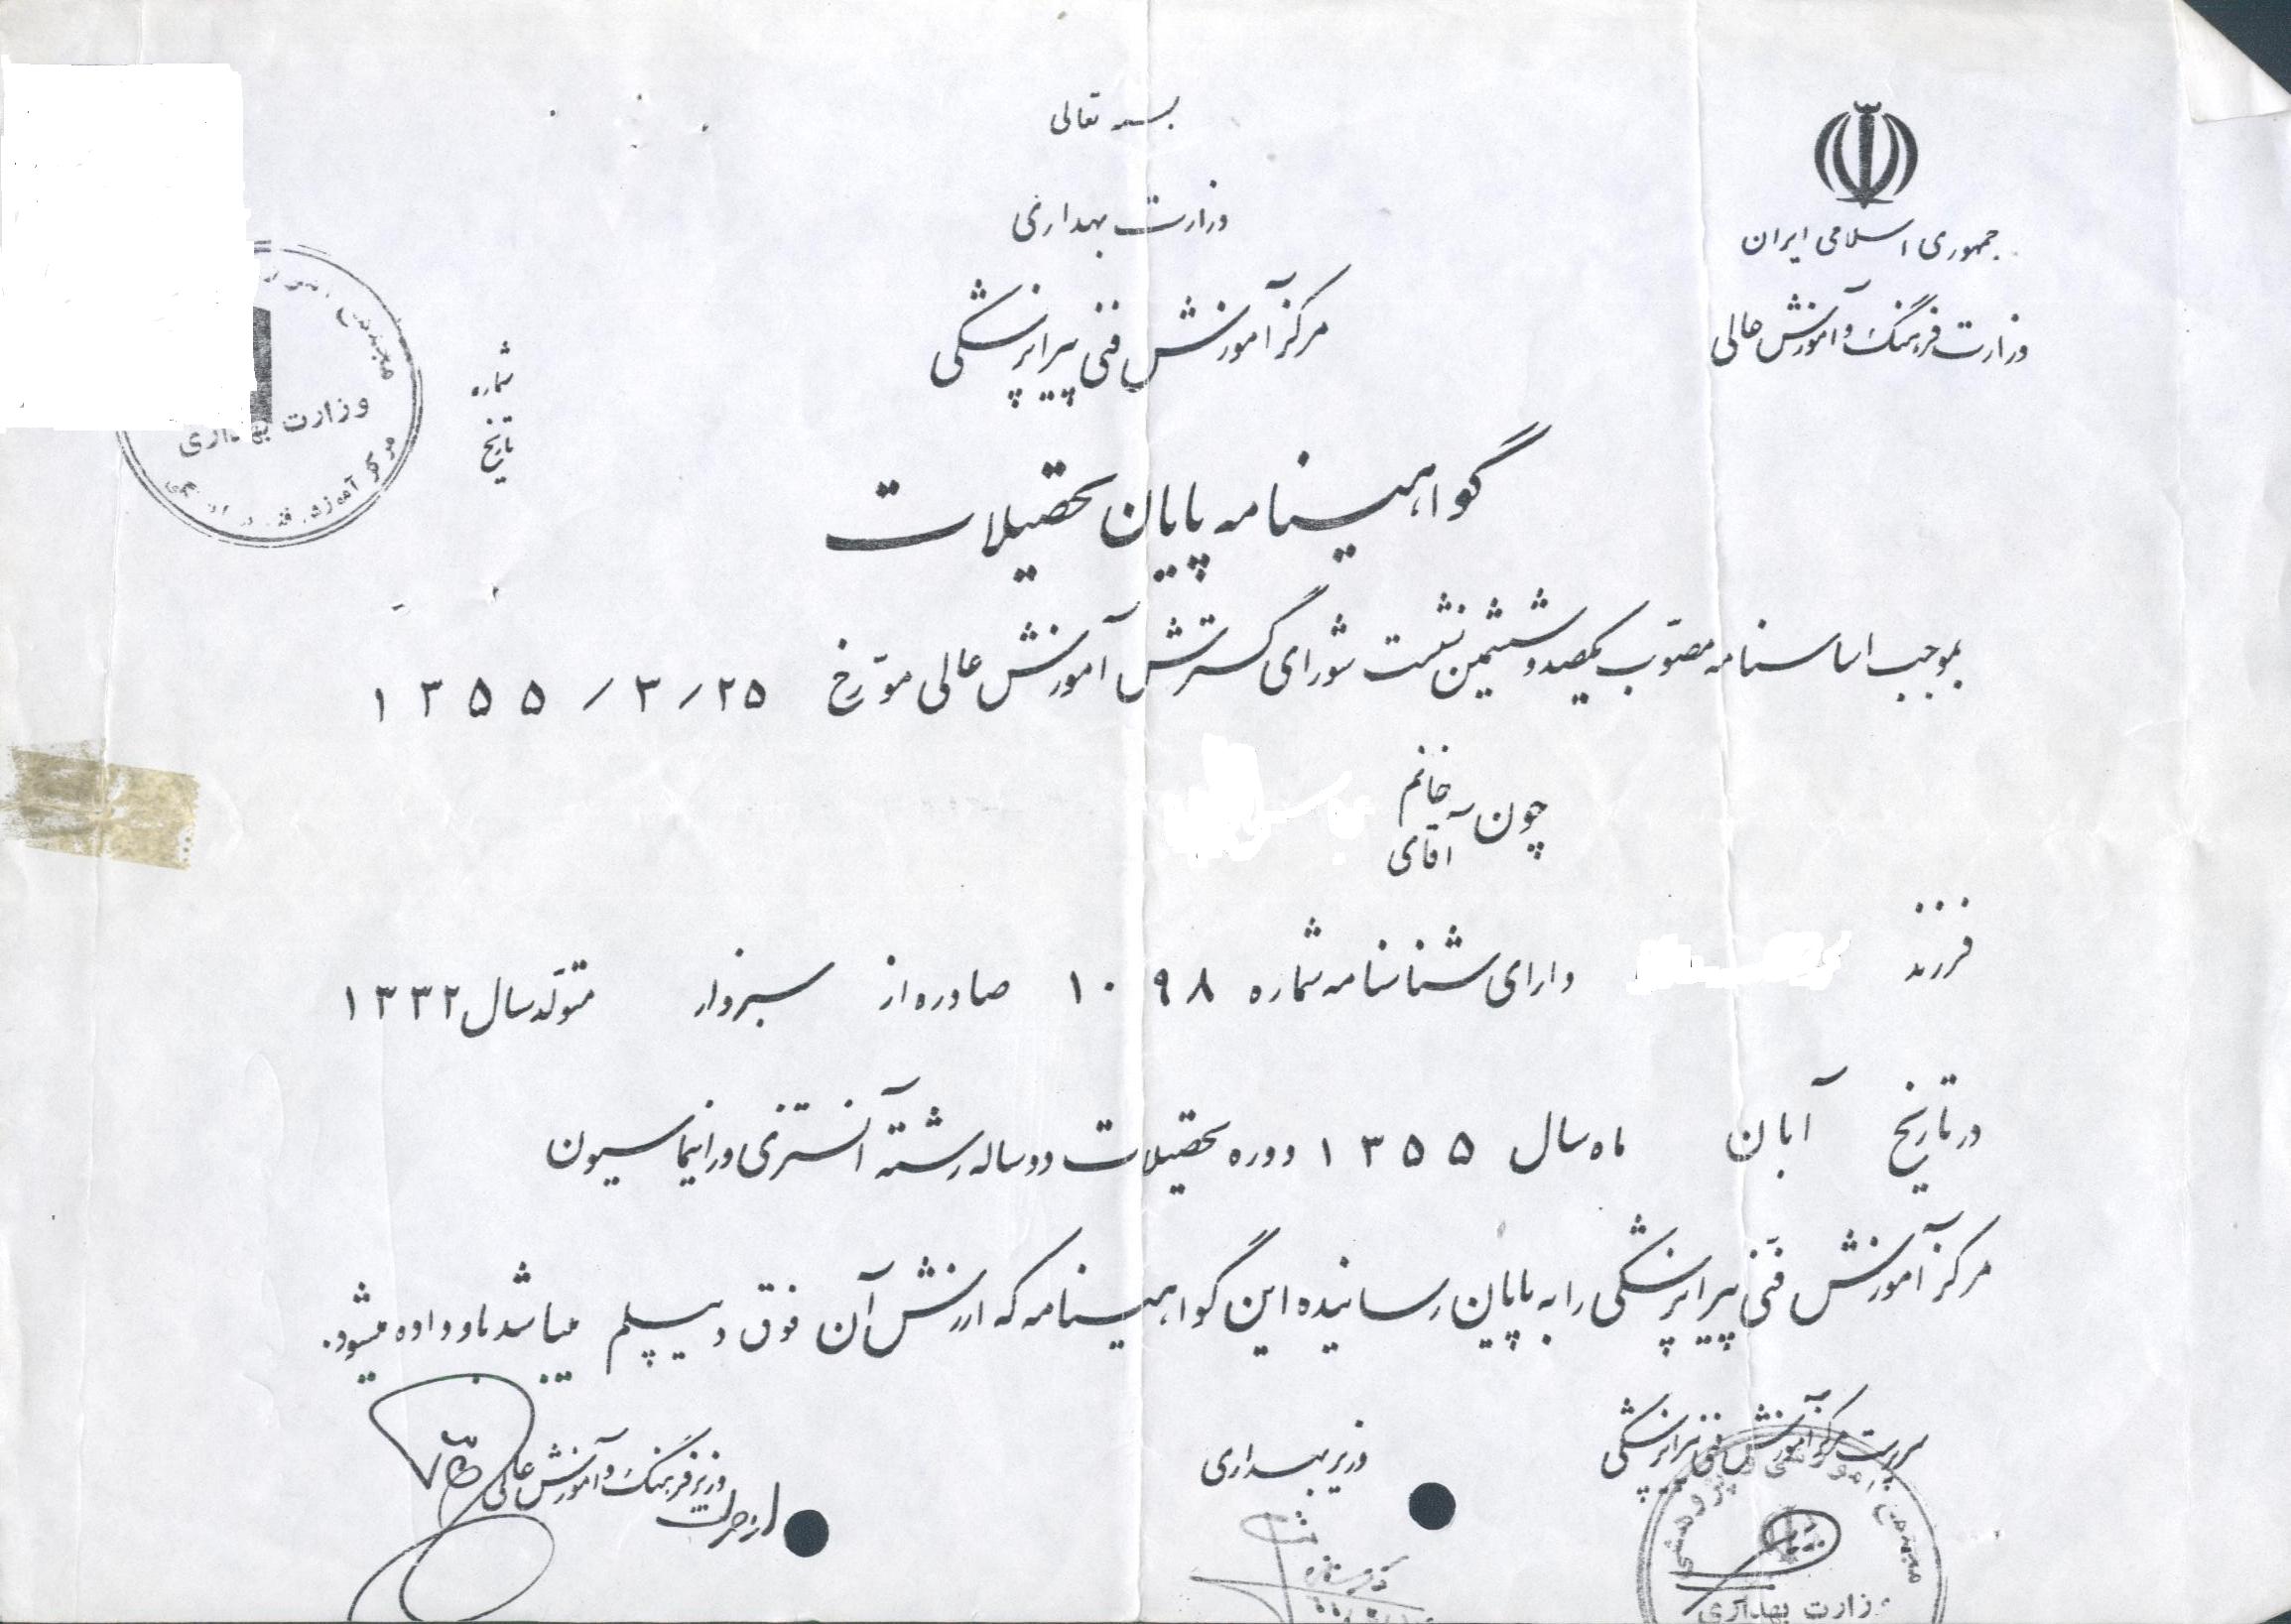 بسمه تعالی
جمهوری اسلامی ایران
وزارت فرهنگ و آموزش عالی
وزارت بهداری
مرکز آموزش فنی پیراپزشکی
شماره
تاریخ
وزارت بهداری
گواهینامه پایان تحصیلات
بموجب اساسنامه مصوّب یکصد و ششمین نشست شورای گسترش آموزش عالی مورّخ ۱۳۵۵/۳/۲۵
چون خانم
آقای
فرزند دارای شناسنامه شماره ۱۰۹۸ صادره از سبزوار متولّد سال ۱۳۳۲
در تاریخ آبان ماه سال ۱۳۵۵ دوره تحصیلات دو ساله رشته آنستزی و رانیماسیون
مرکز آموزش فنّی پیراپزشکی را به پایان رسانیده این گواهینامه که ارزش آن فوق دیپلم میباشد باو داده میشود.
سرپرست مرکز آموزش فنی پیراپزشکی
وزیر بهداری
وزیر فرهنگ و آموزش عالی
از طرف
مجتمع آموزشی و پژوهشی
وزارت بهداری